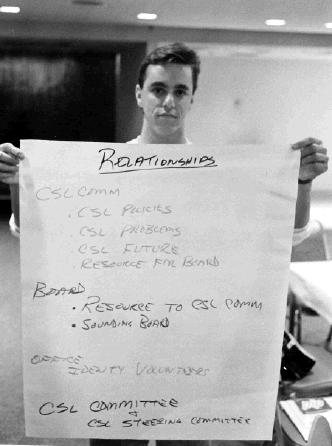 RELATIONSHIPS
CSL COMM
• CSL POLICIES
• CSL PROBLEMS
CSL FUTURE
• RESOURCE FOR BOARD
BOARD
• RESOURCE TO CSL COMM
• SOUNDING BOARD
OFFICE
IDENTIFY VOLUNTEERS
CSL COMMITTEE
&
CSL STEERING COMMITTEE